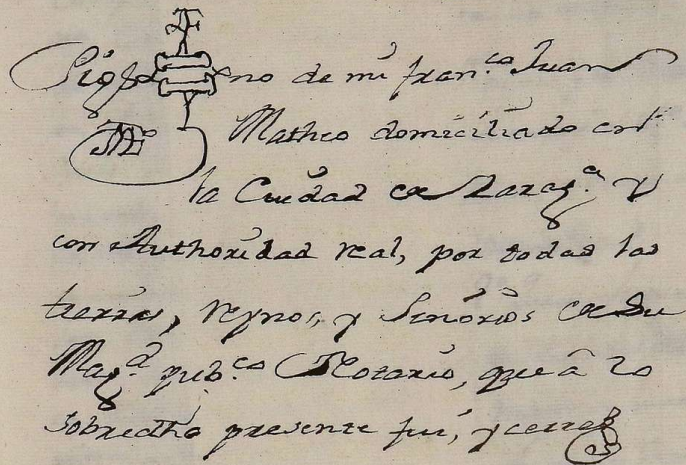 Sig no de mi Fran.co Juan
Matheo domiciliado en
la Ciudad de Zarag.a y
con Authoridad real, por todas las
tierras, reynos, y Señorios de Su
Mag.d pub.co Notario, que â lo
sobredho presente fui, y cerre